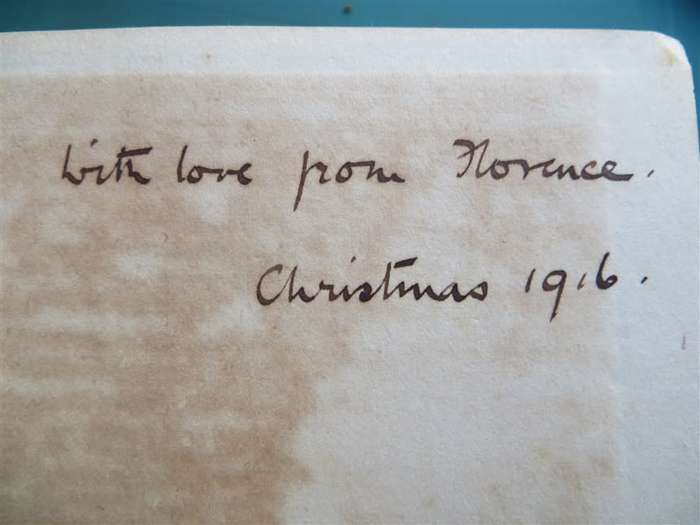 With love from Florence.
Christmas 1916.